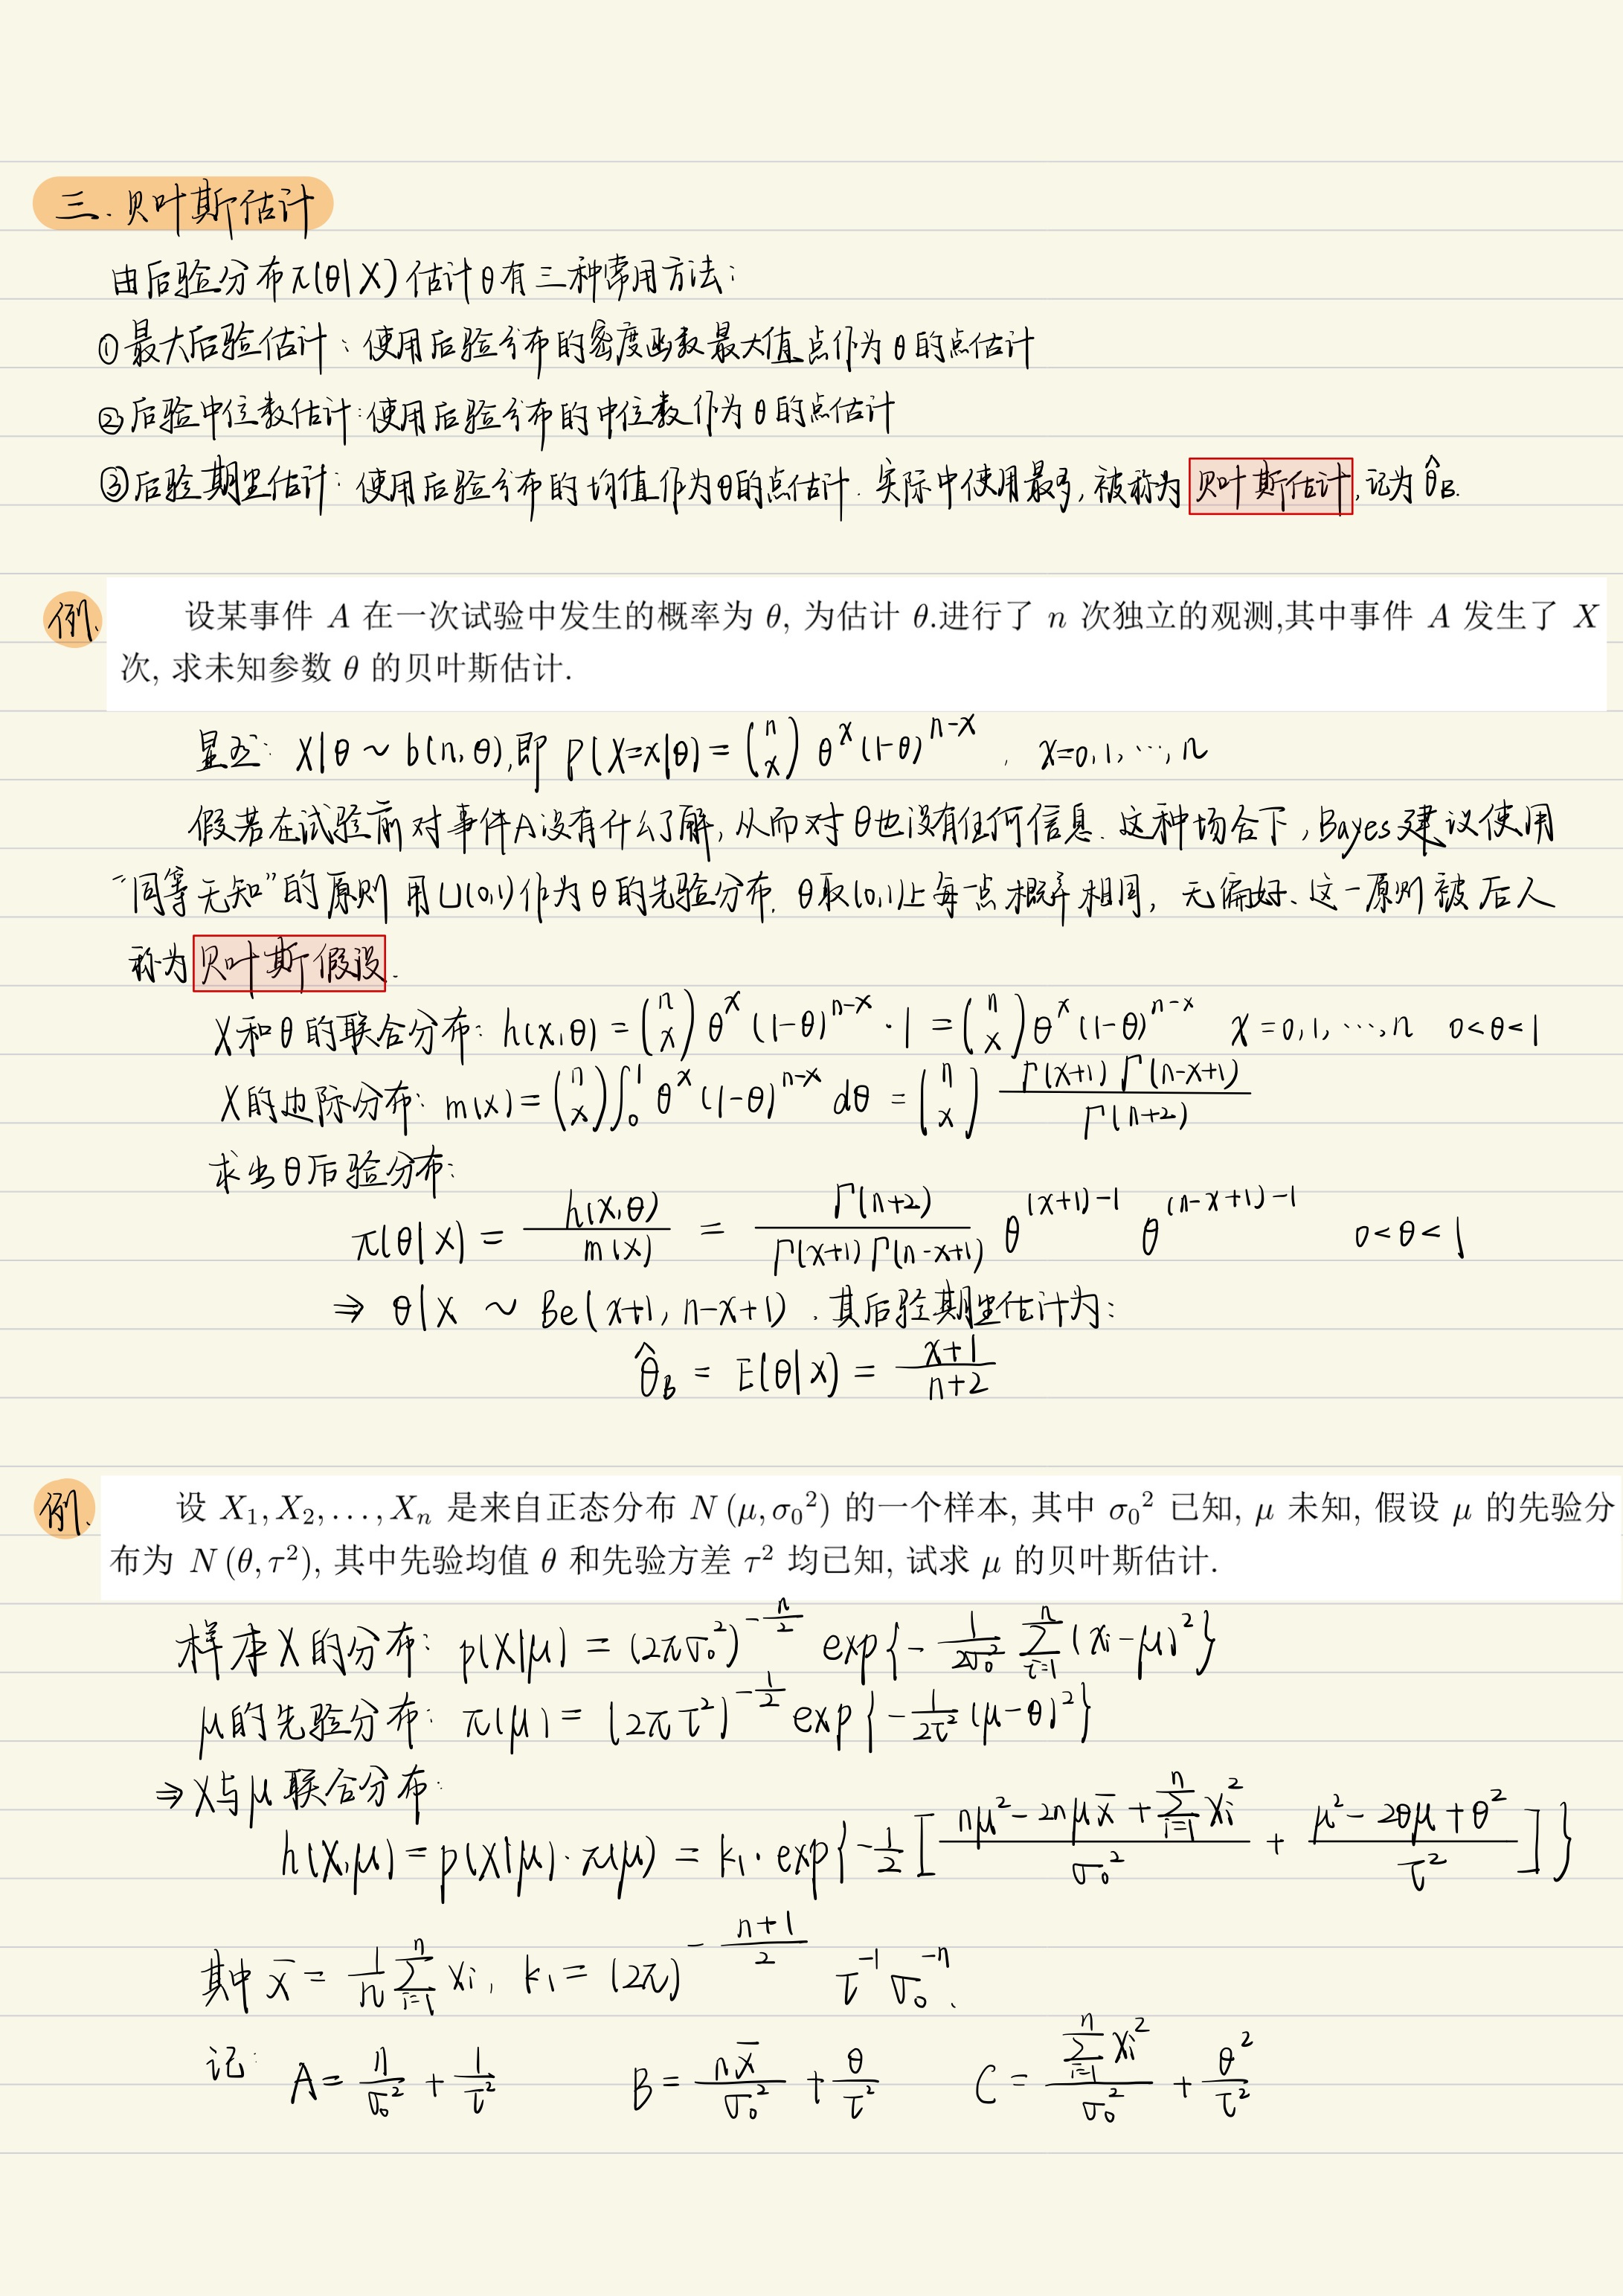 三. 贝叶斯估计
由后验分布π(θ|X)估计θ有三种常用方法:
①最大后验估计: 使用后验分布的密度函数最大值点作为θ的点估计
②后验中位数估计: 使用后验分布的中位数作为θ的点估计
③后验期望估计: 使用后验分布的均值作为θ的点估计. 实际中使用最多, 被称为贝叶斯估计, 记为 θ̂_B.
例. 设某事件 A 在一次试验中发生的概率为 θ, 为估计 θ.进行了 n 次独立的观测,其中事件 A 发生了 X
次, 求未知参数 θ 的贝叶斯估计.
显然: X|θ ~ b(n,θ),即 P(X=x|θ) = (n x) θ^x (1-θ)^{n-x} , x=0,1,…,n
假若在试验前对事件A没有什么了解, 从而对θ也没有任何信息. 这种场合下, Bayes建议使用
"同等无知"的原则 用U(0,1)作为θ的先验分布, θ取(0,1)上每一点概率相同, 无偏好、这一原则被后人
称为贝叶斯假设.
X和θ的联合分布: h(x,θ) = (n x) θ^x (1-θ)^{n-x} · 1 = (n x) θ^x (1-θ)^{n-x} x=0,1,…,n 0<θ<1
X的边际分布: m(x) = (n x) ∫_0^1 θ^x (1-θ)^{n-x} dθ = (n x) Γ(x+1)Γ(n-x+1) / Γ(n+2)
求出θ后验分布:
π(θ|x) = h(x,θ) / m(x) = Γ(n+2) / Γ(x+1)Γ(n-x+1) θ^{(x+1)-1} θ^{(n-x+1)-1} 0<θ<1
⇒ θ|X ~ Be(x+1, n-x+1) . 其后验期望估计为:
θ̂_B = E(θ|x) = x+1 / n+2
例. 设 X_1, X_2, ..., X_n 是来自正态分布 N(μ,σ_0^2) 的一个样本, 其中 σ_0^2 已知, μ 未知, 假设 μ 的先验分
布为 N(θ,τ^2), 其中先验均值 θ 和先验方差 τ^2 均已知, 试求 μ 的贝叶斯估计.
样本X的分布: p(X|μ) = (2πσ_0^2)^{-n/2} exp{-1/2σ_0^2 Σ_{i=1}^n (x_i-μ)^2}
μ的先验分布: π(μ) = (2πτ^2)^{-1/2} exp{-1/2τ^2 (μ-θ)^2}
⇒ X与μ联合分布:
h(X,μ) = p(X|μ)·π(μ) = k_1·exp{-1/2 [ nμ^2-2nμx̄+Σ_{i=1}^n x_i^2 / σ_0^2 + μ^2-2θμ+θ^2 / τ^2 ]}
其中 x̄ = 1/n Σ_{i=1}^n x_i, k_1 = (2π)^{-(n+1)/2} τ^{-1} σ_0^{-n}.
记: A = n/σ_0^2 + 1/τ^2 B = nx̄/σ_0^2 + θ/τ^2 C = Σ_{i=1}^n x_i^2 / σ_0^2 + θ^2/τ^2